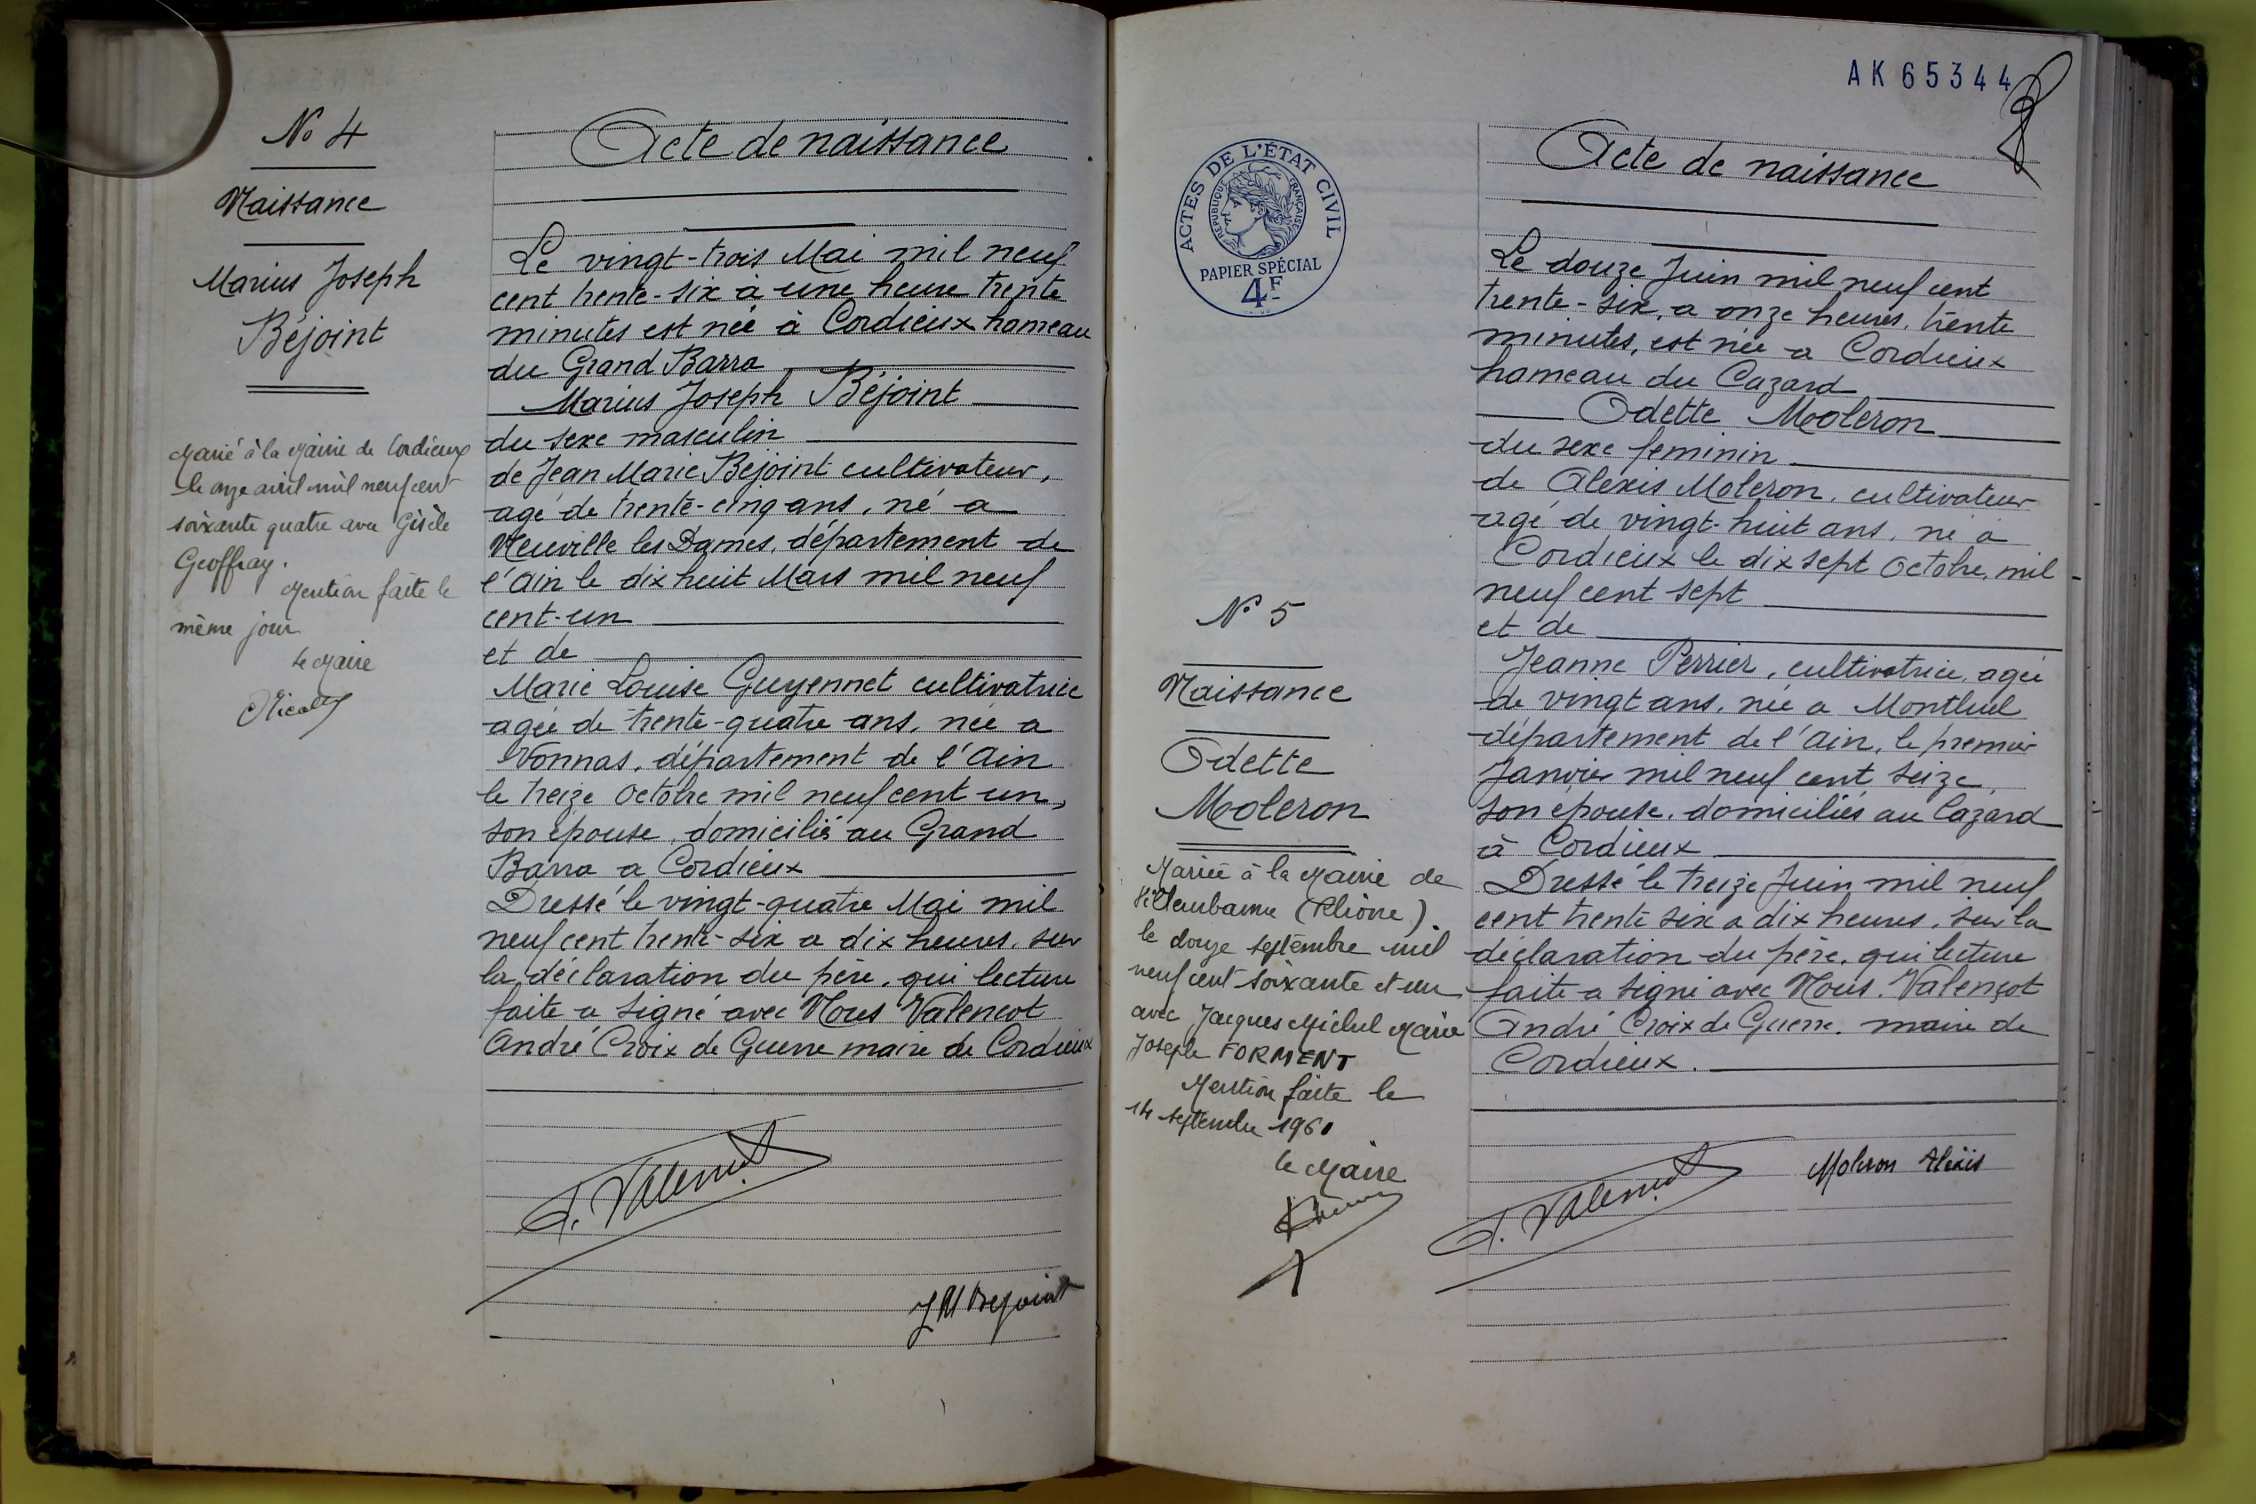 No 4
Naissance
Marius Joseph
Béjoint
Marié à la Mairie de Cordieux
le onze avril mil neuf cent
soixante quatre avec Gisèle
Geoffray.
Mention faite le
même jour
Le Maire
Acte de naissance
Le vingt-trois Mai mil neuf
cent trente-six à une heure trente
minutes est née à Cordieux hameau
du Grand Barra
Marius Joseph Béjoint
du sexe masculin
de Jean Marie Béjoint cultivateur,
agé de trente-cinq ans, né a
Neuville les Dames, département de
l'Ain le dix huit Mars mil neuf
cent-un
et de
Marie Louise Guyennet cultivatrice
agée de trente-quatre ans, née a
Vonnas, département de l'Ain
le treize octobre mil neuf cent un,
son epouse, domiciliés au Grand
Barra a Cordieux
Dressé le vingt-quatre Mai mil
neuf cent trente-six a dix heures, sur
la déclaration du père, qui lecture
faite a signé avec Nous Valencot
André Croix de Guerre maire de Cordieux
J M Bejoint
AK65344
ACTES DE L'ÉTAT CIVIL
RÉPUBLIQUE FRANÇAISE
PAPIER SPÉCIAL
4F
No 5
Naissance
Odette
Moleron
Mariée à la Mairie de
Villeurbanne (Rhône).
le douze septembre mil
neuf cent soixante et un
avec Jacques Michel Marie
Joseph FORMENT
Mention faite le
14 septembre 1961
le Maire
Acte de naissance
Le douze Juin mil neuf cent
trente-six, a onze heures, trente
minutes, est née a Cordieux
hameau du Cazard
Odette Moleron
du sexe feminin
de Alexis Moleron, cultivateur
agé de vingt-huit ans, né à
Cordieux le dix sept octobre, mil
neuf cent sept
et de
Jeanne Perrier, cultivatrice, agée
de vingt ans, née a Montluel
département de l'Ain, le premier
Janvier mil neuf cent seize,
son epouse, domiciliés au Cazard
à Cordieux
Dressé le treize Juin mil neuf
cent trente six a dix heures, sur la
déclaration du père, qui lecture
faite a signé avec Nous. Valençot
André Croix de Guerre. maire de
Cordieux.
Moleron Alexis